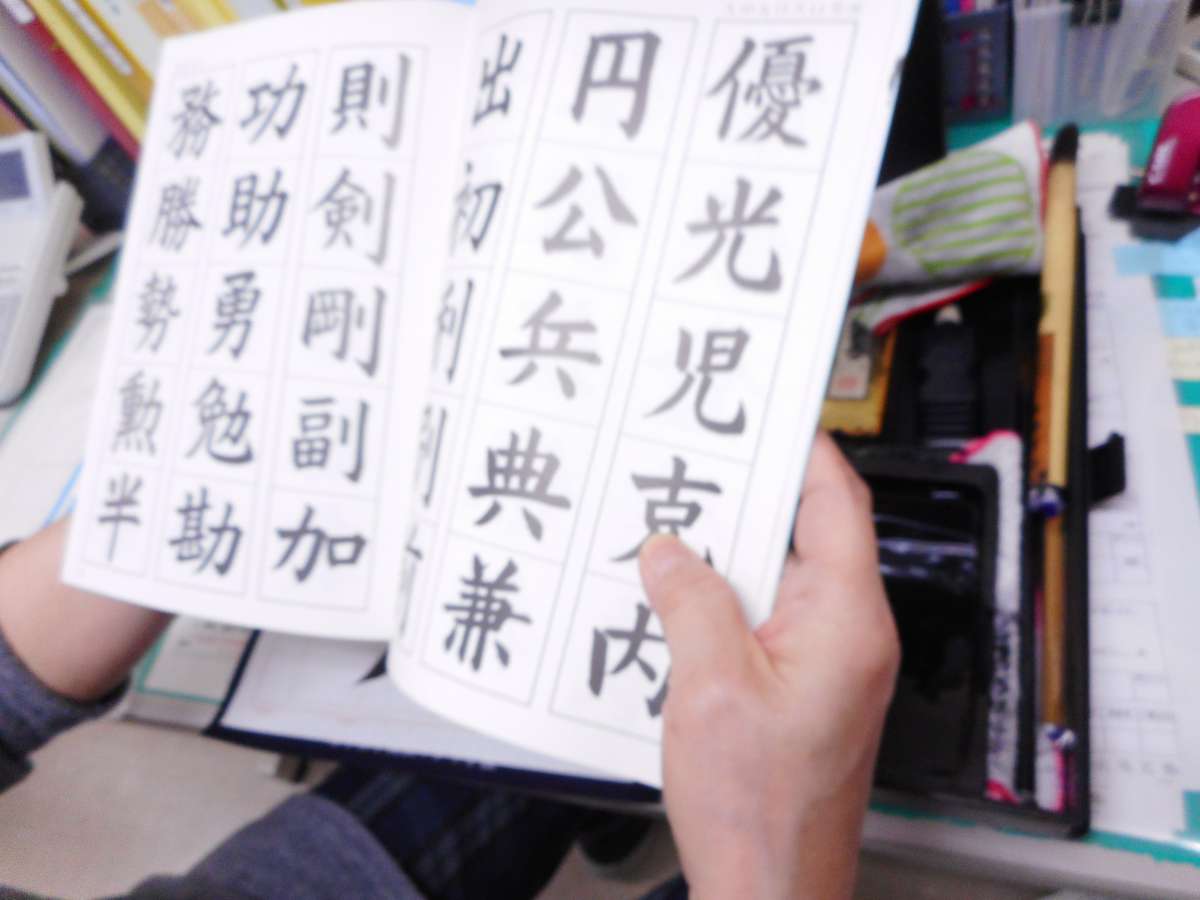 優光児克内
円公兵典兼
出初利
則剣剛副加
功助勇勉勘
務勝勢勲半